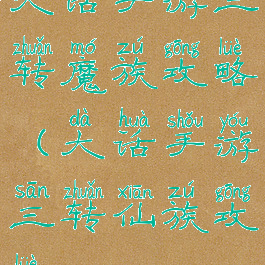 大话手游三
zhuǎn mó zú gōng lüè
转魔族攻略
dà huà shǒu yóu
（大话手游
sān zhuǎn xiān zú gōng
三转仙族攻
lüè